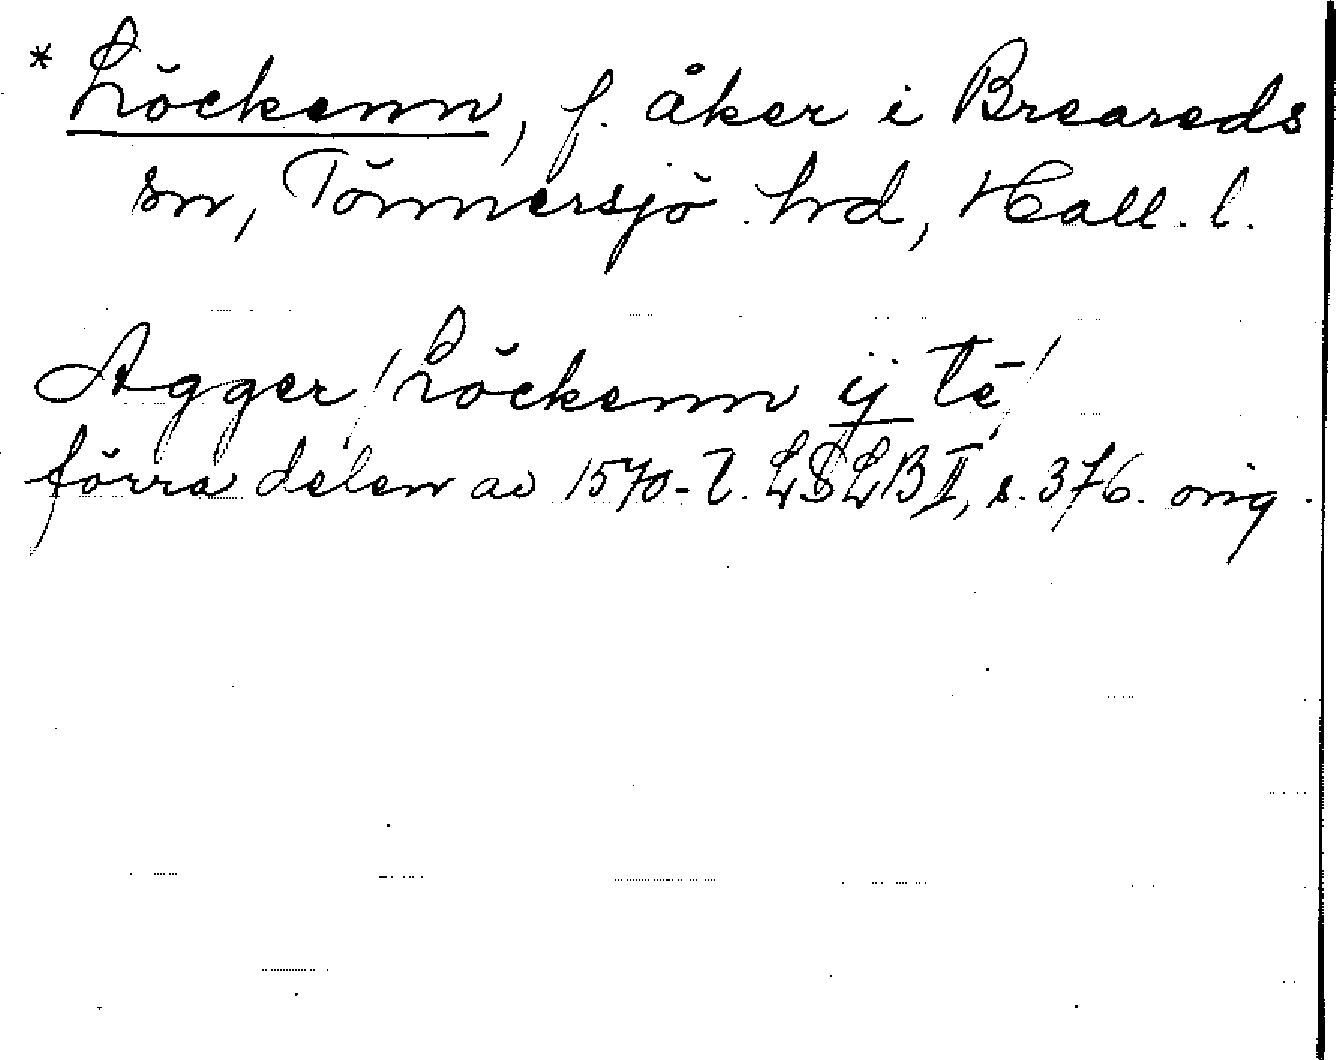 * Löckenn, f. åker i Breareds
sn, Tönnersjö hrd, Hall. l.
Agger / Löckenn ij tē /
förra delen av 1570-t. LSLB II, s. 376. orig.